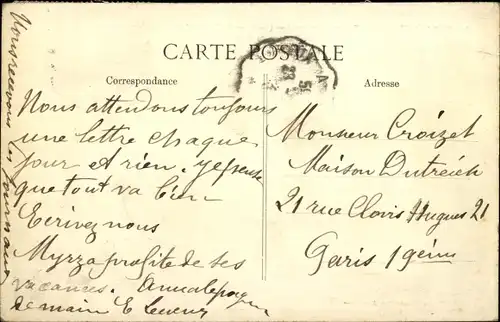 CARTE POSTALE
Correspondance
Adresse
Nous attendons toujours
une lettre chaque
jour et rien. Je pense
que tout va bien
Ecrivez nous
Myrza profite de ses
vacances.
demain E
Nous recevons les journaux
Monsieur Croizet
Maison Dutreich
21 rue Clovis Hugues 21
Paris 19ème